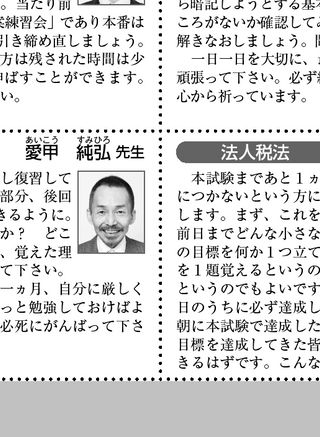 。当たり前
練習会」であり本番は
引き締め直しましょう。
方は残された時間は少
ばすことができます。
い。
あいこう すみひろ
愛甲 純弘 先生
し復習して
部分、後回
きるように。
か？ どこ
、覚えた理
て下さい。
一ヵ月、自分に厳しく
っと勉強しておけばよ
必死にがんばって下さ
ら暗記しようとする基
ころがないか確認して
解きなおしましょう。
一日一日を大切に、
頑張って下さい。必ず
心から祈っています。
法人税法
本試験まであと１ヵ
につかないという方に
します。まず、これを
前日までどんな小さな
の目標を何か１つ立て
を１題覚えるというの
というのでもよいです
日のうちに必ず達成し
朝に本試験で達成した
目標を達成してきた皆
きるはずです。こんな